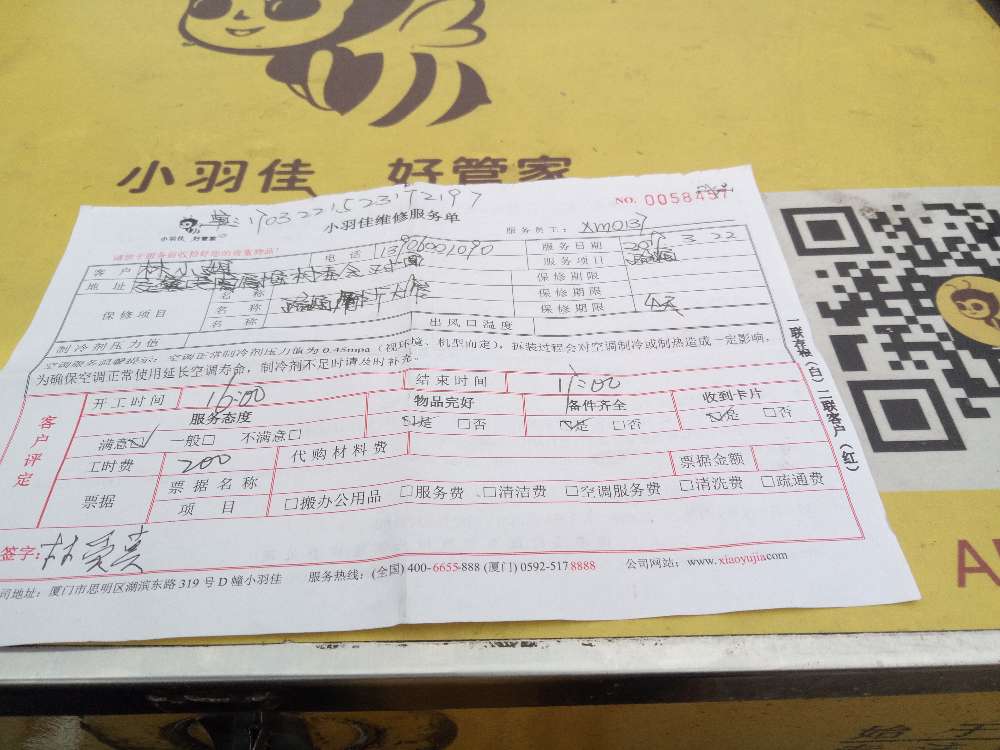 小羽佳 好管家
单:1703221523172197
NO. 0058457
小羽佳 好管家
小羽佳维修服务单
服务员工: xm0137
客户 林小姐 电话 13906001090 服务日期 2017 3 22
地址 服务项目 疏通
保修项目 名称 保修期限
名称 保修期限
名称 保修期限
制冷剂压力值 出风口温度
空调服务温馨提示:空调正常制冷剂压力值为0.45mpa(视环境、机型而定),拆装过程会对空调制冷或制热造成一定影响,
为确保空调正常使用延长空调寿命,制冷剂不足时请及时补充。
客户评定
开工时间 16:00 结束时间 17:00
服务态度 物品完好 备件齐全 收到卡片
满意☑ 一般□ 不满意□ ☑是 □否 ☑是 □否 ☑是 □否
工时费 200 代购材料费
票据 票据名称 票据金额
项目 □搬办公用品 □服务费 □清洁费 □空调服务费 □清洗费 □疏通费
签字:
司地址:厦门市思明区湖滨东路319号D幢小羽佳 服务热线:(全国)400-6655-888 (厦门)0592-5178888 公司网站:www.xiaoyujia.com
一联存根(白)二联客户(红)